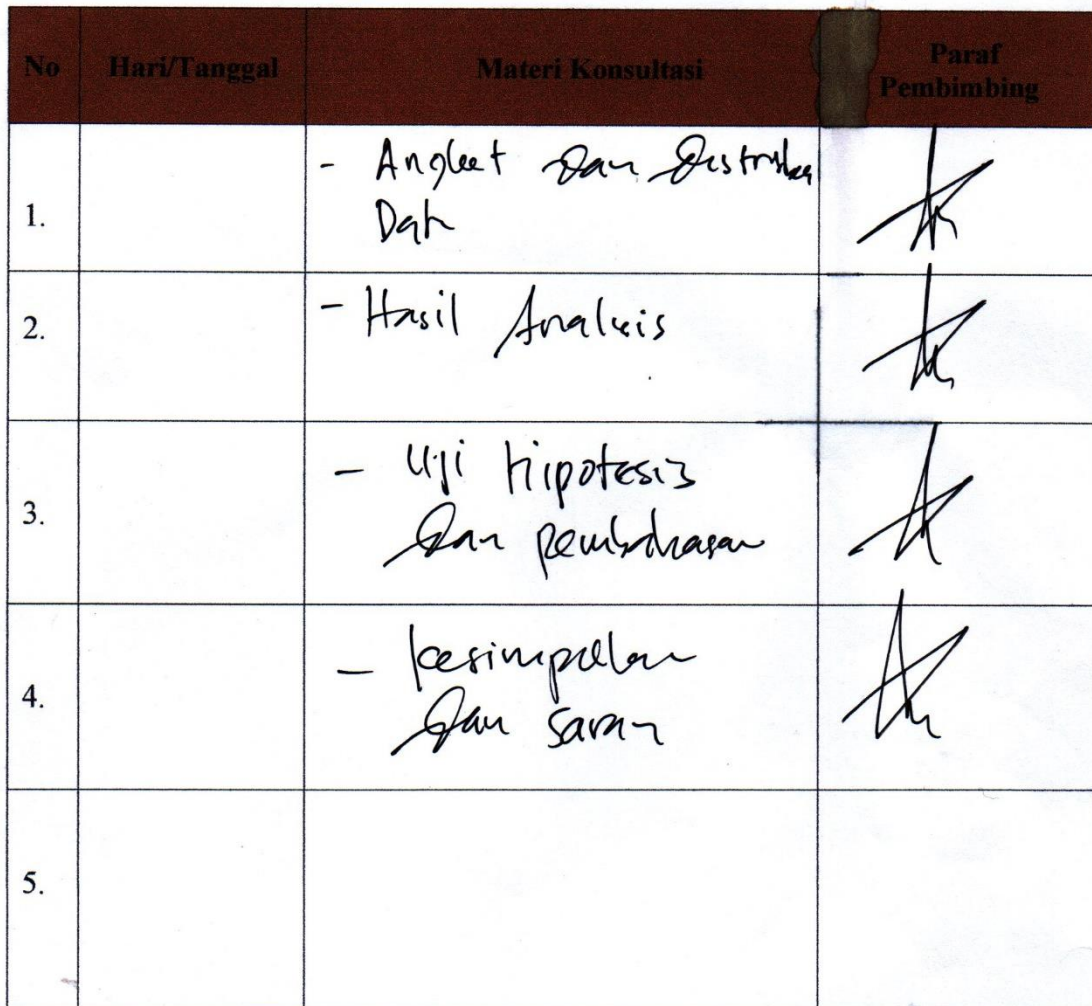 No Hari/Tanggal Materi Konsultasi Paraf
Pembimbing
1. - Angket dan Distribusi
Data
2. - Hasil Analisis
3. - Uji Hipotesis
dan pembahasan
4. - kesimpulan
dan saran
5.